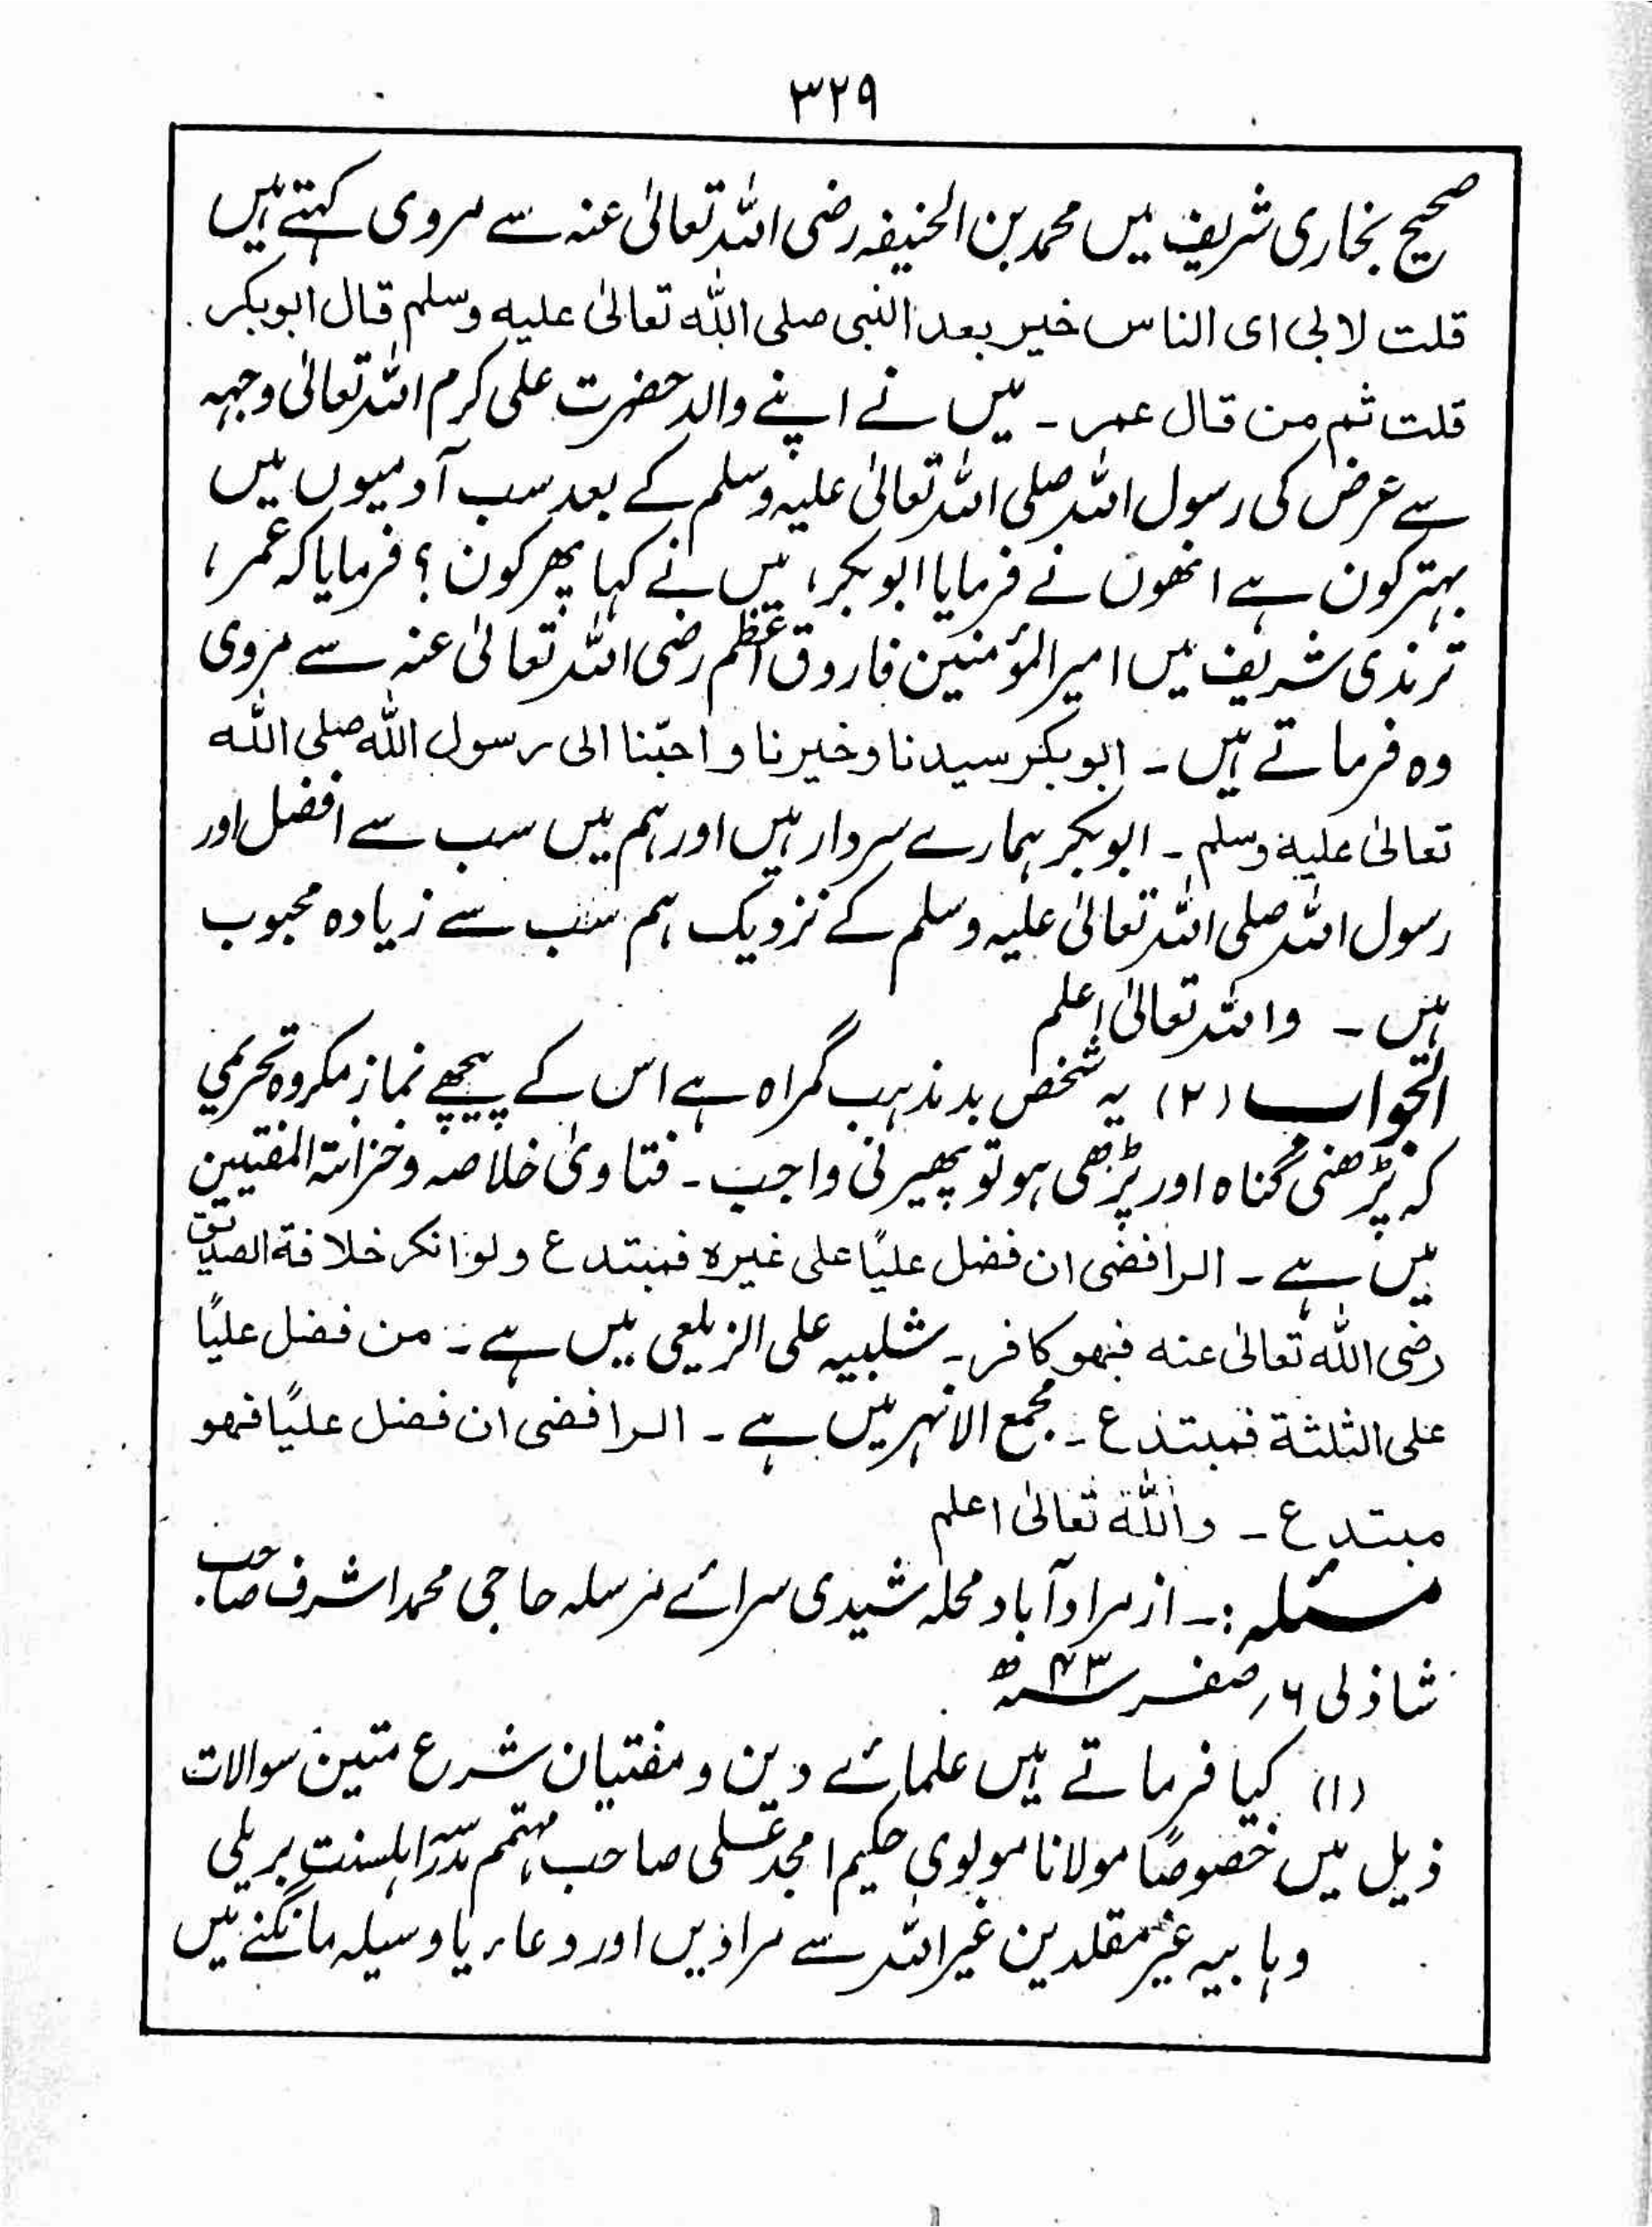 ۳۲۹
صحیح بخاری شریف میں محمد بن الحنیفہ رضی اللہ تعالیٰ عنہ سے مروی کہتے ہیں
قلت لابی ای الناس خیر بعد النبی صلی اللہ تعالیٰ علیہ وسلم قال ابوبکر
قلت ثم من قال عمر ۔ میں نے اپنے والد حضرت علی کرم اللہ تعالیٰ وجہہ
سے عرض کی رسول اللہ صلی اللہ تعالیٰ علیہ وسلم کے بعد سب آدمیوں میں
بہتر کون ہے انھوں نے فرمایا ابوبکر، میں نے کہا پھر کون ؟ فرمایا کہ عمر ،
ترمذی شریف میں امیر المؤمنین فاروق اعظم رضی اللہ تعالیٰ عنہ سے مروی
وہ فرماتے ہیں ۔ ابوبکر سیدنا وخیرنا و احبّنا الی رسول اللہ صلی اللہ
تعالیٰ علیہ وسلم ۔ ابوبکر ہمارے سردار ہیں اور ہم میں سب سے افضل اور
رسول اللہ صلی اللہ تعالیٰ علیہ وسلم کے نزدیک ہم سب سے زیادہ محبوب
ہیں ۔ واللہ تعالیٰ اعلم
الجواب (۲) یہ شخص بدمذہب گمراہ ہے اس کے پیچھے نماز مکروہ تحریمی
کہ پڑھنی گناہ اور پڑھی ہو تو پھیرنی واجب ۔ فتاویٰ خلاصہ وخزانۃ المفتیین
میں ہے ۔ الرافضی ان فضل علیًا علی غیرہ فمبتدع ولو انکر خلافۃ الصدیق
رضی اللہ تعالیٰ عنہ فہو کافر ۔ شلبیہ علی الزیلعی میں ہے ۔ من فضل علیًا
علی الثلثۃ فمبتدع ۔ مجمع الانہر میں ہے ۔ الرافضی ان فضل علیًا فہو
مبتدع ۔ واللہ تعالیٰ اعلم
مسئلہ :۔ از مرادآباد محلہ شیدی سرائے مرسلہ حاجی محمد اشرف صاحب
شاذلی ۶؍ صفر ۴۳ھ
(۱) کیا فرماتے ہیں علمائے دین و مفتیان شرع متین سوالات
ذیل میں خصوصًا مولانا مولوی حکیم امجد علی صاحب مہتمم مدرسہ اہلسنت بریلی
وہابیہ غیر مقلدین غیر اللہ سے مرادیں اور دعاء یا وسیلہ مانگنے میں